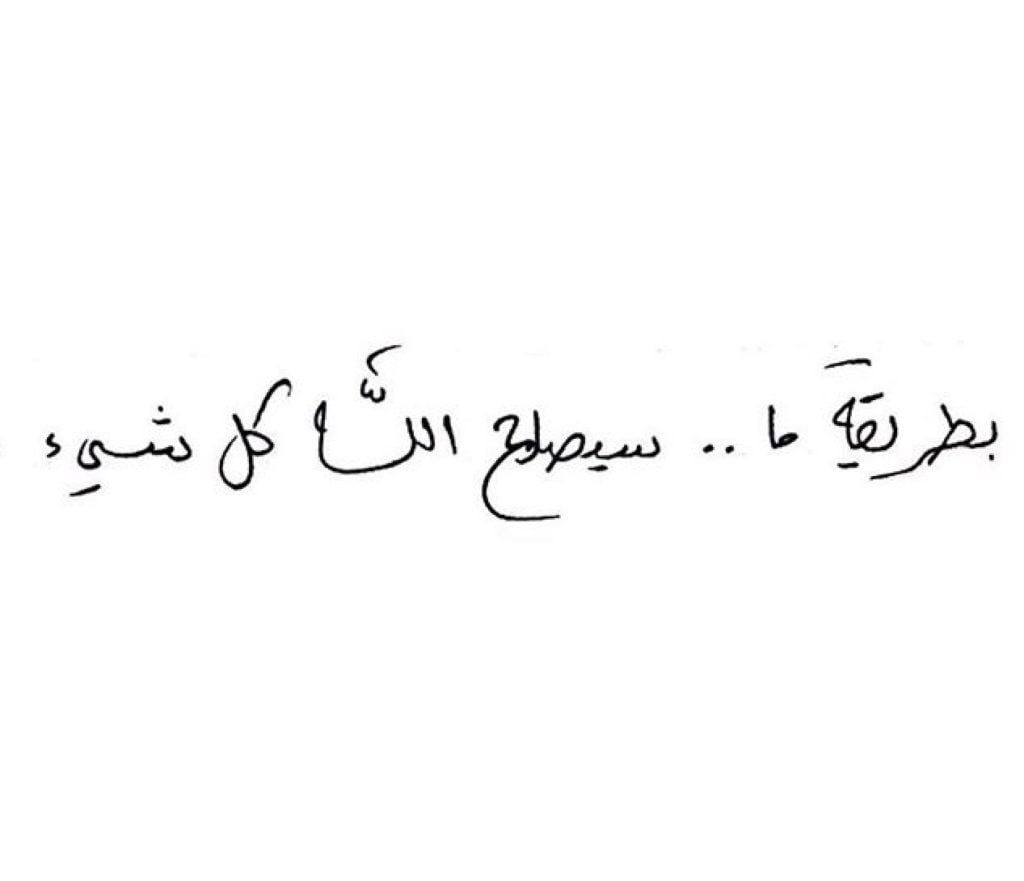 بطريقةٍ ما .. سيصلح اللّٰه كل شيء